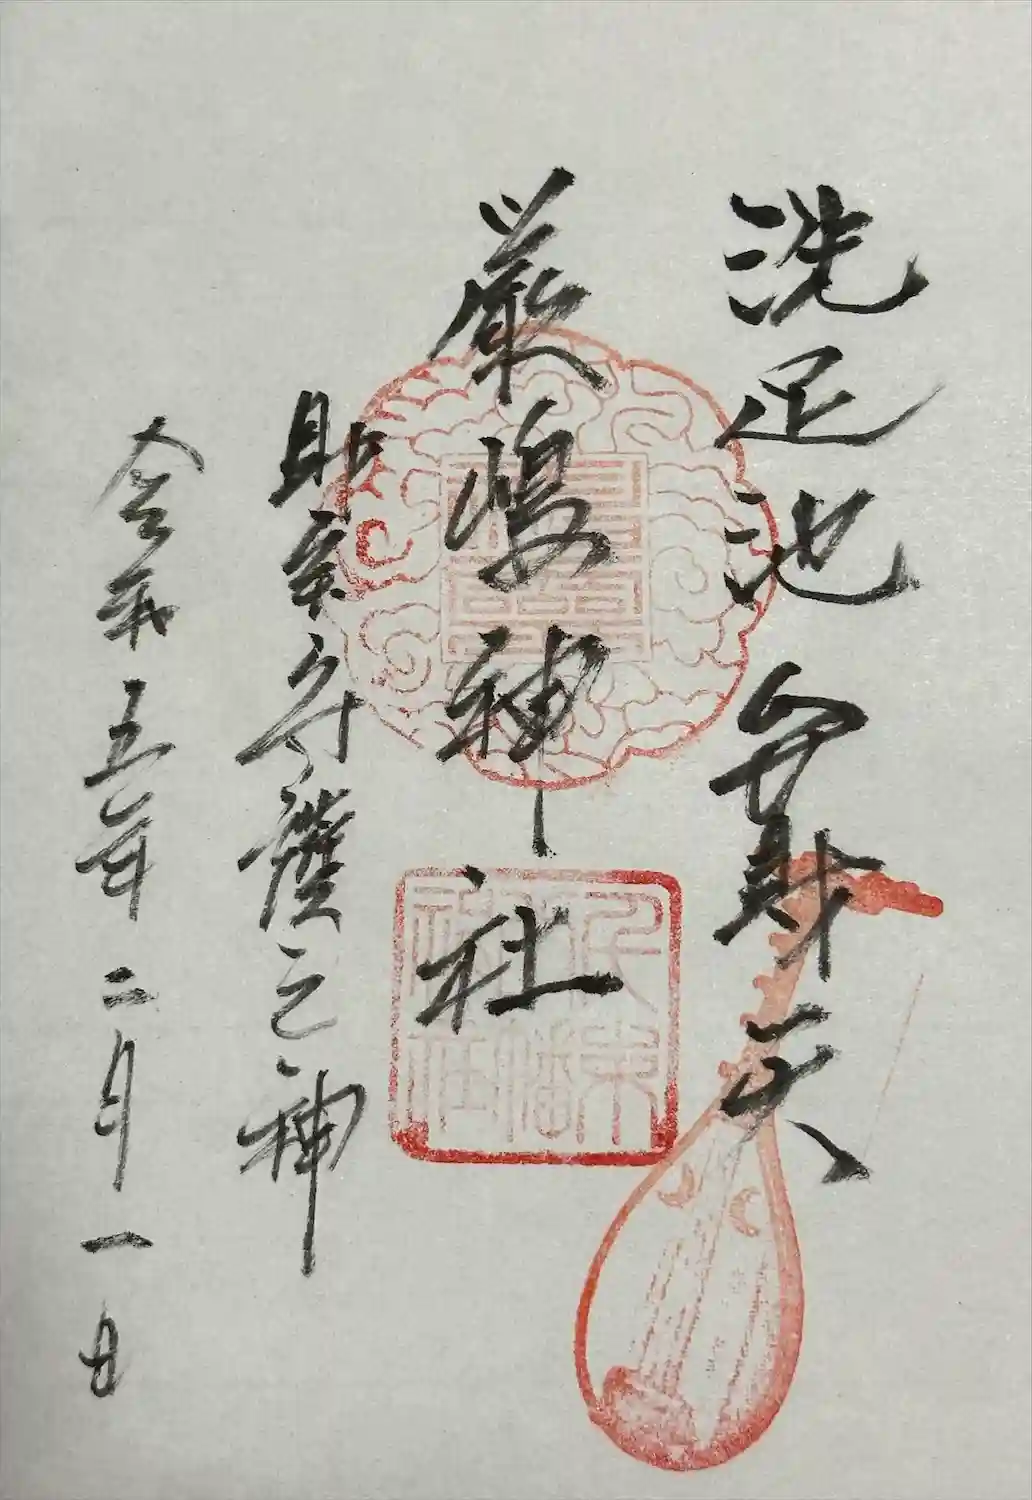 洗足池 弁財天
厳嶋神社
守護之神
令和五年二月一日